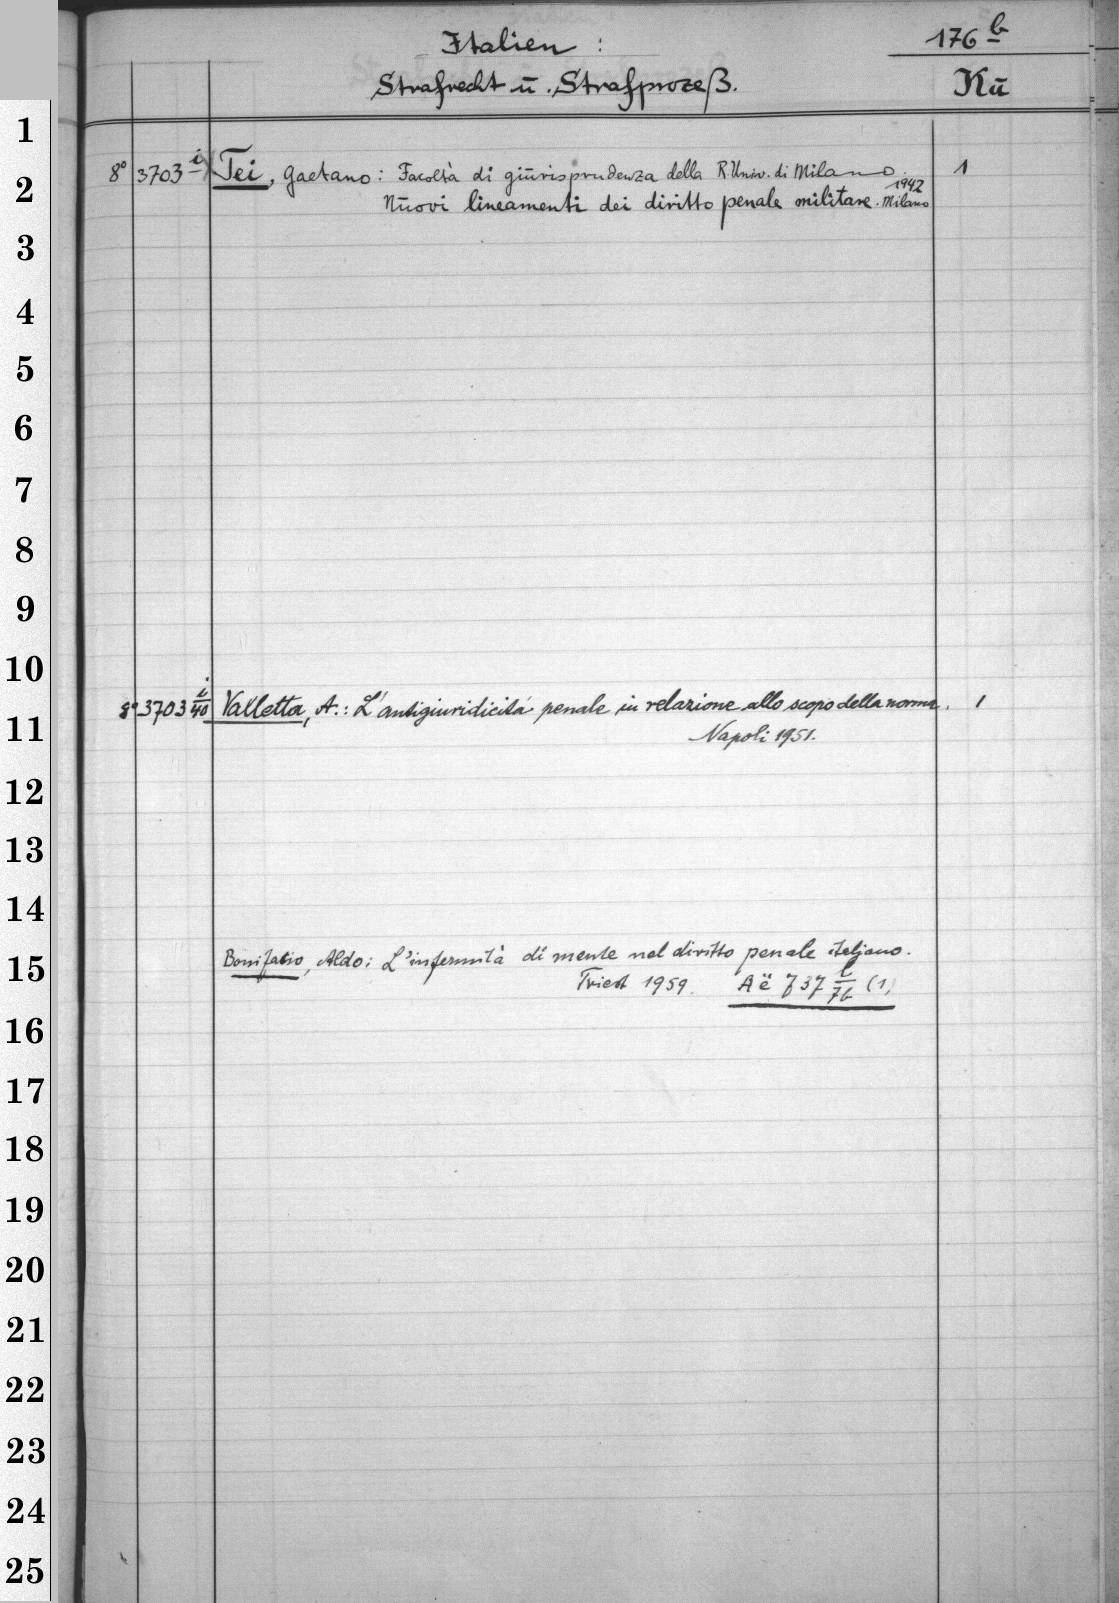 Italien :
176 b
Strafrecht ū. Strafprozeß.
Kū
1
8° 3703 i Tei, Gaetano: Facoltà di giūrisprudenza della R. Univ. di Milano. 1
2
Nūovi lineamenti dei diritto penale militare. Milano 1942
3
4
5
6
7
8
9
10
8° 3703 i/40 Valletta, A.: L'antigiuridicitá penale in relazione allo scopo della norma. 1
11
Napoli 1951.
12
13
14
Bonifatio, Aldo: L'infermità di mente nel diritto penale iteljano.
15
Triest 1959. Aë 737 l/76 (1)
16
17
18
19
20
21
22
23
24
25